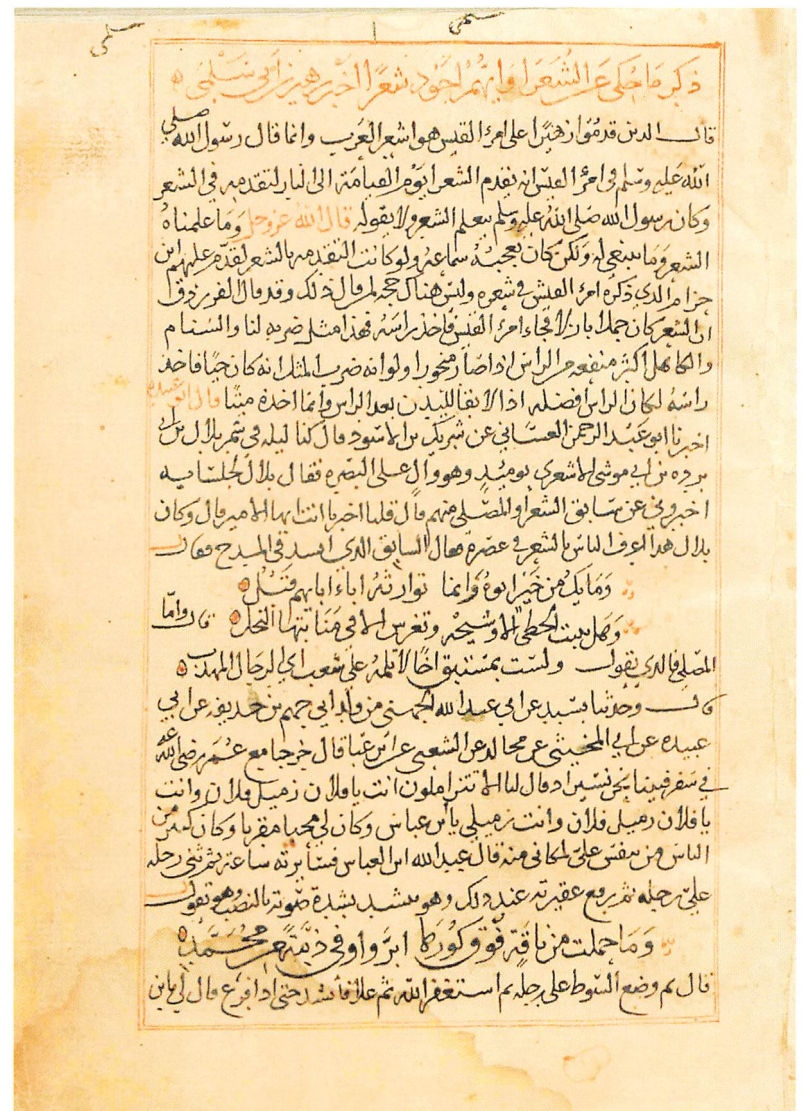 سلمى
سلمى
ذكر ما حكى عن الشعرا وايهم اجود شعرا اخبر زهير بن ابي سلمى
قال الدين قدموا زهيرا على امرئ القيس هو اشعر العرب وانما قال رسول الله صلى
الله عليه وسلم في امرئ القيس انه يقدم الشعرا يوم القيامة الى النار لتقدمه في الشعر
وكان رسول الله صلى الله عليه وسلم يعلم الشعر ولا يقوله قال الله عز وجل وما علمناه
الشعر وما ينبغي له ولكن كان يعجبه سماعه ولو كانت التقدمه بالشعر لقدم عليهم ابن
حزام الدي ذكره امرئ القيس في شعره وليس هناك حجه لمن قال ذلك وقد قال الفرزدق
ان الشعر كان جملا بازلا فجاء امرئ القيس فاخذ راسه فهذا مثل ضربه لنا والسنام
والكاهل اكثر منفعه من الراس اذا صار منحورا ولو انه ضرب المثل انه كان حيا فاخذ
راسه لكان الراس افضله اذ لا بقا للبدن بعد الراس وانما اخذه ميتا قال ابو عبيده
اخبرنا ابو عبد الرحمن الغساني عن شريك بن الاسود قال كنا ليله في سمر بلال بن ابي
برده بن ابي موسى الاشعري يوميد وهو وال على البصره فقال بلال لجلسايه
اخبروني عن سابق الشعرا والمصلى منهم قال قلنا اخبرنا انت ايها الامير قال وكان
بلال هدا اعرف الناس بالشعر في عصره فقال السابق الدي انشد في المدح فقال
وما يك من خير اتوه وانما توارثه اباء ابايهم قبل
وهل ينبت الخطى الا وشيجه وتغرس الا في منابتها النخل قال واما
المصلى فالدي يقول ولست بمستبق اخا لا تلمه على شعث اي الرجال المهذب
قال وحدثنا سنيد عن ابي عبد الله الجهني من ولد ابي جهم بن حديفه عن ابي
عبيده عن ابي المخيثى عن مجالد عن الشعبي عن ابن عبا قال خرجنا مع عمر رضي الله عنه
في سفر فبينا نحن نسير اد قال لنا الا تتزاملون انت يا فلان زميل فلان وانت
يا فلان زميل فلان وانت زميلي يا بن عباس وكان لي محبا مقربا وكان كثير من
الناس من ينفس علي لمكاني منه قال عبد الله ابن العباس فسايرته ساعة ثم ثنى رحله
على رحله ثم رفع عقيرته عند ذلك وهو ينشد بشدة صوته بالنصب وهو يقول
وما حملت من ناقة فوق كورها ابر واوفى ذمة من محمد
قال ثم وضع السوط على رحله ثم استغفر الله ثم علا فانشد حتى اذا فرغ قال لي يا بن